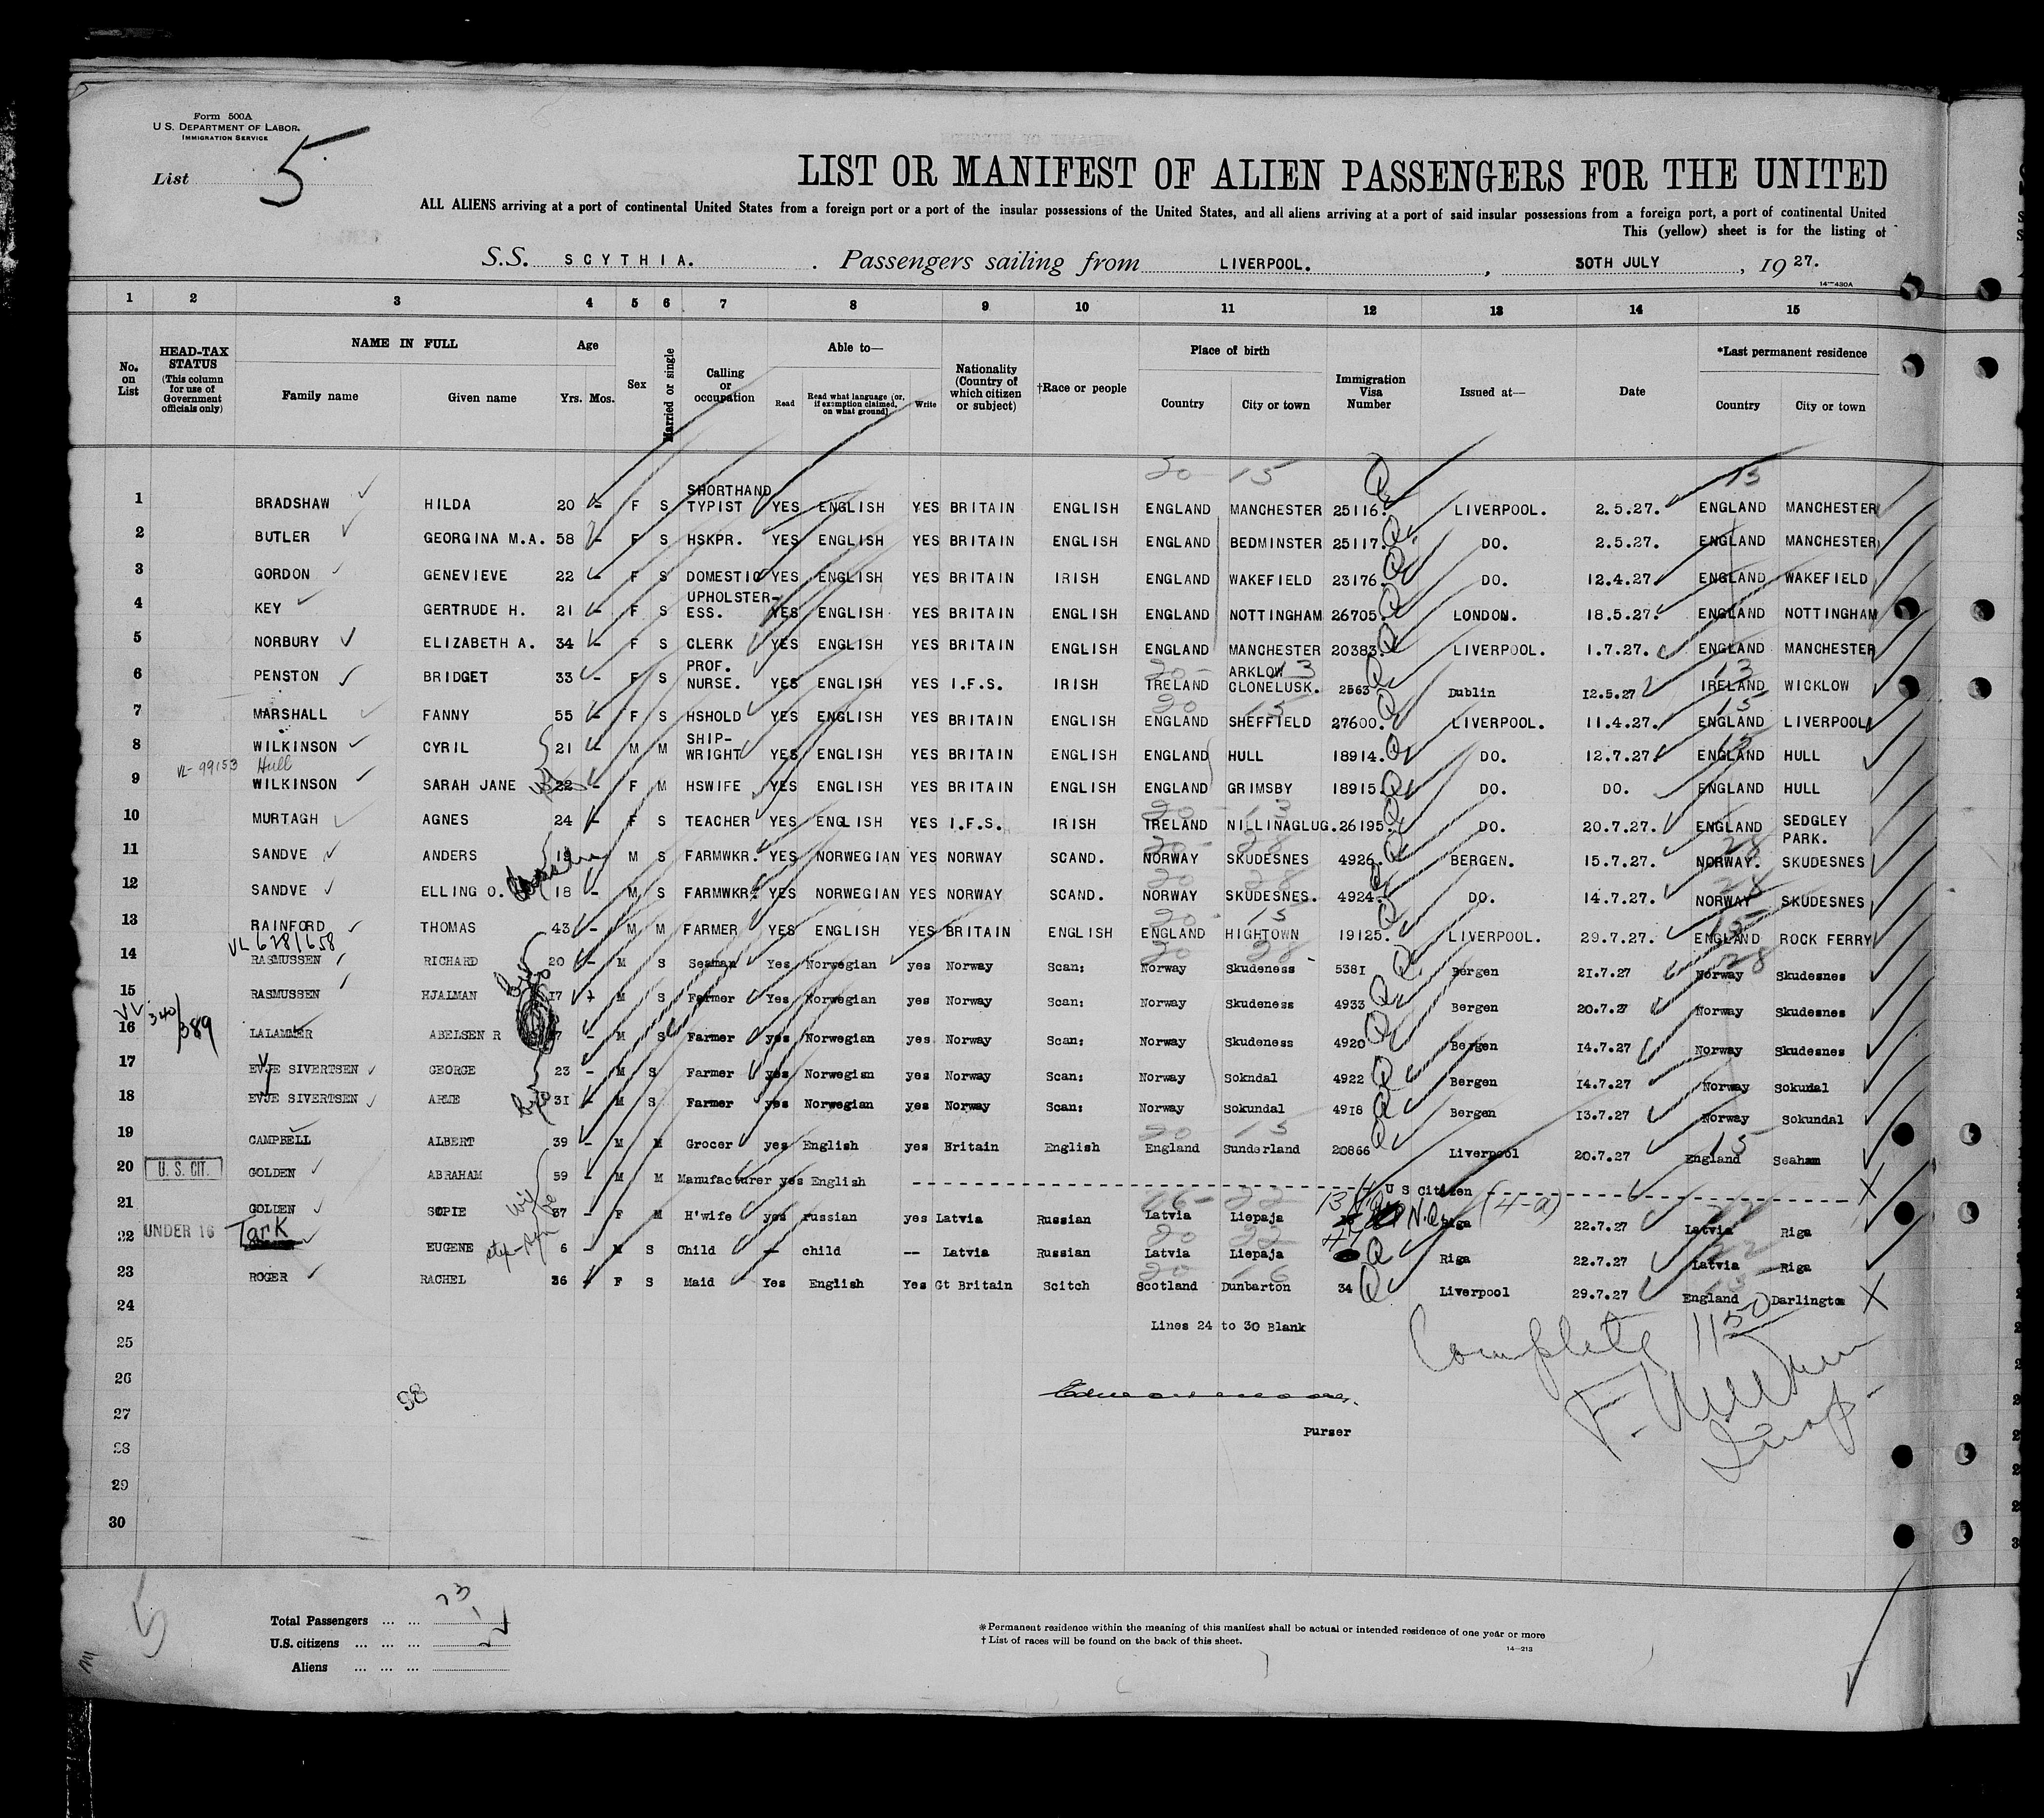 Form 500A
U. S. DEPARTMENT OF LABOR.
IMMIGRATION SERVICE
List 5
LIST OR MANIFEST OF ALIEN PASSENGERS FOR THE UNITED
ALL ALIENS arriving at a port of continental United States from a foreign port or a port of the insular possessions of the United States, and all aliens arriving at a port of said insular possessions from a foreign port, a port of continental United
This (yellow) sheet is for the listing of
S.S. SCYTHIA. Passengers sailing from LIVERPOOL. , 30TH JULY , 19 27.
14—430A
1 2 3 4 5 6 7 8 9 10 11 12 13 14 15
No. on List HEAD-TAX STATUS (This column for use of Government officials only) NAME IN FULL Family name Given name Age Yrs. Mos. Sex Married or single Calling or occupation Able to— Read Read what language (or, if exemption claimed, on what ground) Write Nationality (Country of which citizen or subject) †Race or people Place of birth Country City or town Immigration Visa Number Issued at— Date *Last permanent residence Country City or town
20 15 15
1 BRADSHAW HILDA 20 - F S SHORTHAND TYPIST YES ENGLISH YES BRITAIN ENGLISH ENGLAND MANCHESTER 25116. Q LIVERPOOL. 2.5.27. ENGLAND MANCHESTER
2 BUTLER GEORGINA M.A. 58 - F S HSKPR. YES ENGLISH YES BRITAIN ENGLISH ENGLAND BEDMINSTER 25117. Q DO. 2.5.27. ENGLAND MANCHESTER
3 GORDON GENEVIEVE 22 - F S DOMESTIC YES ENGLISH YES BRITAIN IRISH ENGLAND WAKEFIELD 23176. Q DO. 12.4.27. ENGLAND WAKEFIELD
4 KEY GERTRUDE H. 21 - F S UPHOLSTER-ESS. YES ENGLISH YES BRITAIN ENGLISH ENGLAND NOTTINGHAM 26705. Q LONDON. 18.5.27. ENGLAND NOTTINGHAM
5 NORBURY ELIZABETH A. 34 - F S CLERK YES ENGLISH YES BRITAIN ENGLISH ENGLAND MANCHESTER 20383. Q LIVERPOOL. 1.7.27. ENGLAND MANCHESTER
20 - 13 13
6 PENSTON BRIDGET 33 - F S PROF. NURSE. YES ENGLISH YES I.F.S. IRISH IRELAND ARKLOW CLONELUSK. 2563 Q Dublin 12.5.27 IRELAND WICKLOW
20 15 15
7 MARSHALL FANNY 55 - F S HSHOLD YES ENGLISH YES BRITAIN ENGLISH ENGLAND SHEFFIELD 27600. Q LIVERPOOL. 11.4.27. ENGLAND LIVERPOOL
8 WILKINSON CYRIL 21 - M M SHIP-WRIGHT YES ENGLISH YES BRITAIN ENGLISH ENGLAND HULL 18914. Q DO. 12.7.27. ENGLAND HULL
VL-99153 Hull
9 WILKINSON SARAH JANE 22 - F M HSWIFE YES ENGLISH YES BRITAIN ENGLISH ENGLAND GRIMSBY 18915. Q DO. DO. ENGLAND HULL
20 - 13
10 MURTAGH AGNES 24 - F S TEACHER YES ENGLISH YES I.F.S. IRISH IRELAND NILLINAGLUG. 26195. Q DO. 20.7.27. ENGLAND SEDGLEY PARK.
20 - 28 28
11 SANDVE ANDERS 19 M S FARMWKR. YES NORWEGIAN YES NORWAY SCAND. NORWAY SKUDESNES 4926. Q BERGEN. 15.7.27. NORWAY. SKUDESNES
20 28 28
12 SANDVE ELLING O. 18 - M S FARMWKR. YES NORWEGIAN YES NORWAY SCAND. NORWAY SKUDESNES. 4924. Q DO. 14.7.27. NORWAY SKUDESNES
20 - 15 15
13 RAINFORD THOMAS 43 - M M FARMER YES ENGLISH YES BRITAIN ENGLISH ENGLAND HIGHTOWN 19125. Q LIVERPOOL. 29.7.27. ENGLAND ROCK FERRY
VL 628/658 20 28 28
14 RASMUSSEN RICHARD 20 - M S Seaman Yes Norwegian yes Norway Scan: Norway Skudeness 5381 Q Bergen 21.7.27 Norway Skudesnes
15 RASMUSSEN HJALMAN 17 M S Farmer Yes Norwegian yes Norway Scan: Norway Skudeness 4933 Q Bergen 20.7.27 Norway Skudesnes
VL 340/389
16 LALAMMER ABELSEN R - M S Farmer yes Norwegian yes Norway Scan: Norway Skudeness 4920 Q Bergen 14.7.27 Norway Skudesnes
17 EVJE SIVERTSEN GEORGE 23 - M S Farmer yes Norwegian yes Norway Scan: Norway Sokndal 4922 Q Bergen 14.7.27 Norway Sokundal
18 EVJE SIVERTSEN ARME 31 - M S Farmer yes Norwegian yes Norway Scan: Norway Sokundal 4918 Q Bergen 13.7.27 Norway Sokundal
20 15 15
19 CAMPBELL ALBERT 39 - M M Grocer yes English yes Britain English England Sunderland 20866 Q Liverpool 20.7.27 England Seaham
20 U. S. CIT. GOLDEN ABRAHAM 59 - M M Manufacturer yes English - - - U S Citizen - - - X
wife 16 - 22 13 N.Q. (4-a) 22
21 GOLDEN SOPIE 37 - F M H'wife yes russian yes Latvia Russian Latvia Liepaja Riga 22.7.27 Latvia Riga
step-son 20 22 22
22 UNDER 16 Tark EUGENE 6 - M S Child -- child -- Latvia Russian Latvia Liepaja Q Riga 22.7.27 Latvia Riga
20 16
23 ROGER RACHEL 36 F S Maid Yes English Yes Gt Britain Scitch Scotland Dunbarton 34 Q Liverpool 29.7.27 England Darlington X
24
Lines 24 to 30 Blank
Complete 1150
25
26
98
27
Purser
28
29
30
Total Passengers ... ... 23
U.S. citizens ... ... ... 1
Aliens ... ... ... 22
5
* Permanent residence within the meaning of this manifest shall be actual or intended residence of one year or more
† List of races will be found on the back of this sheet.
14—213